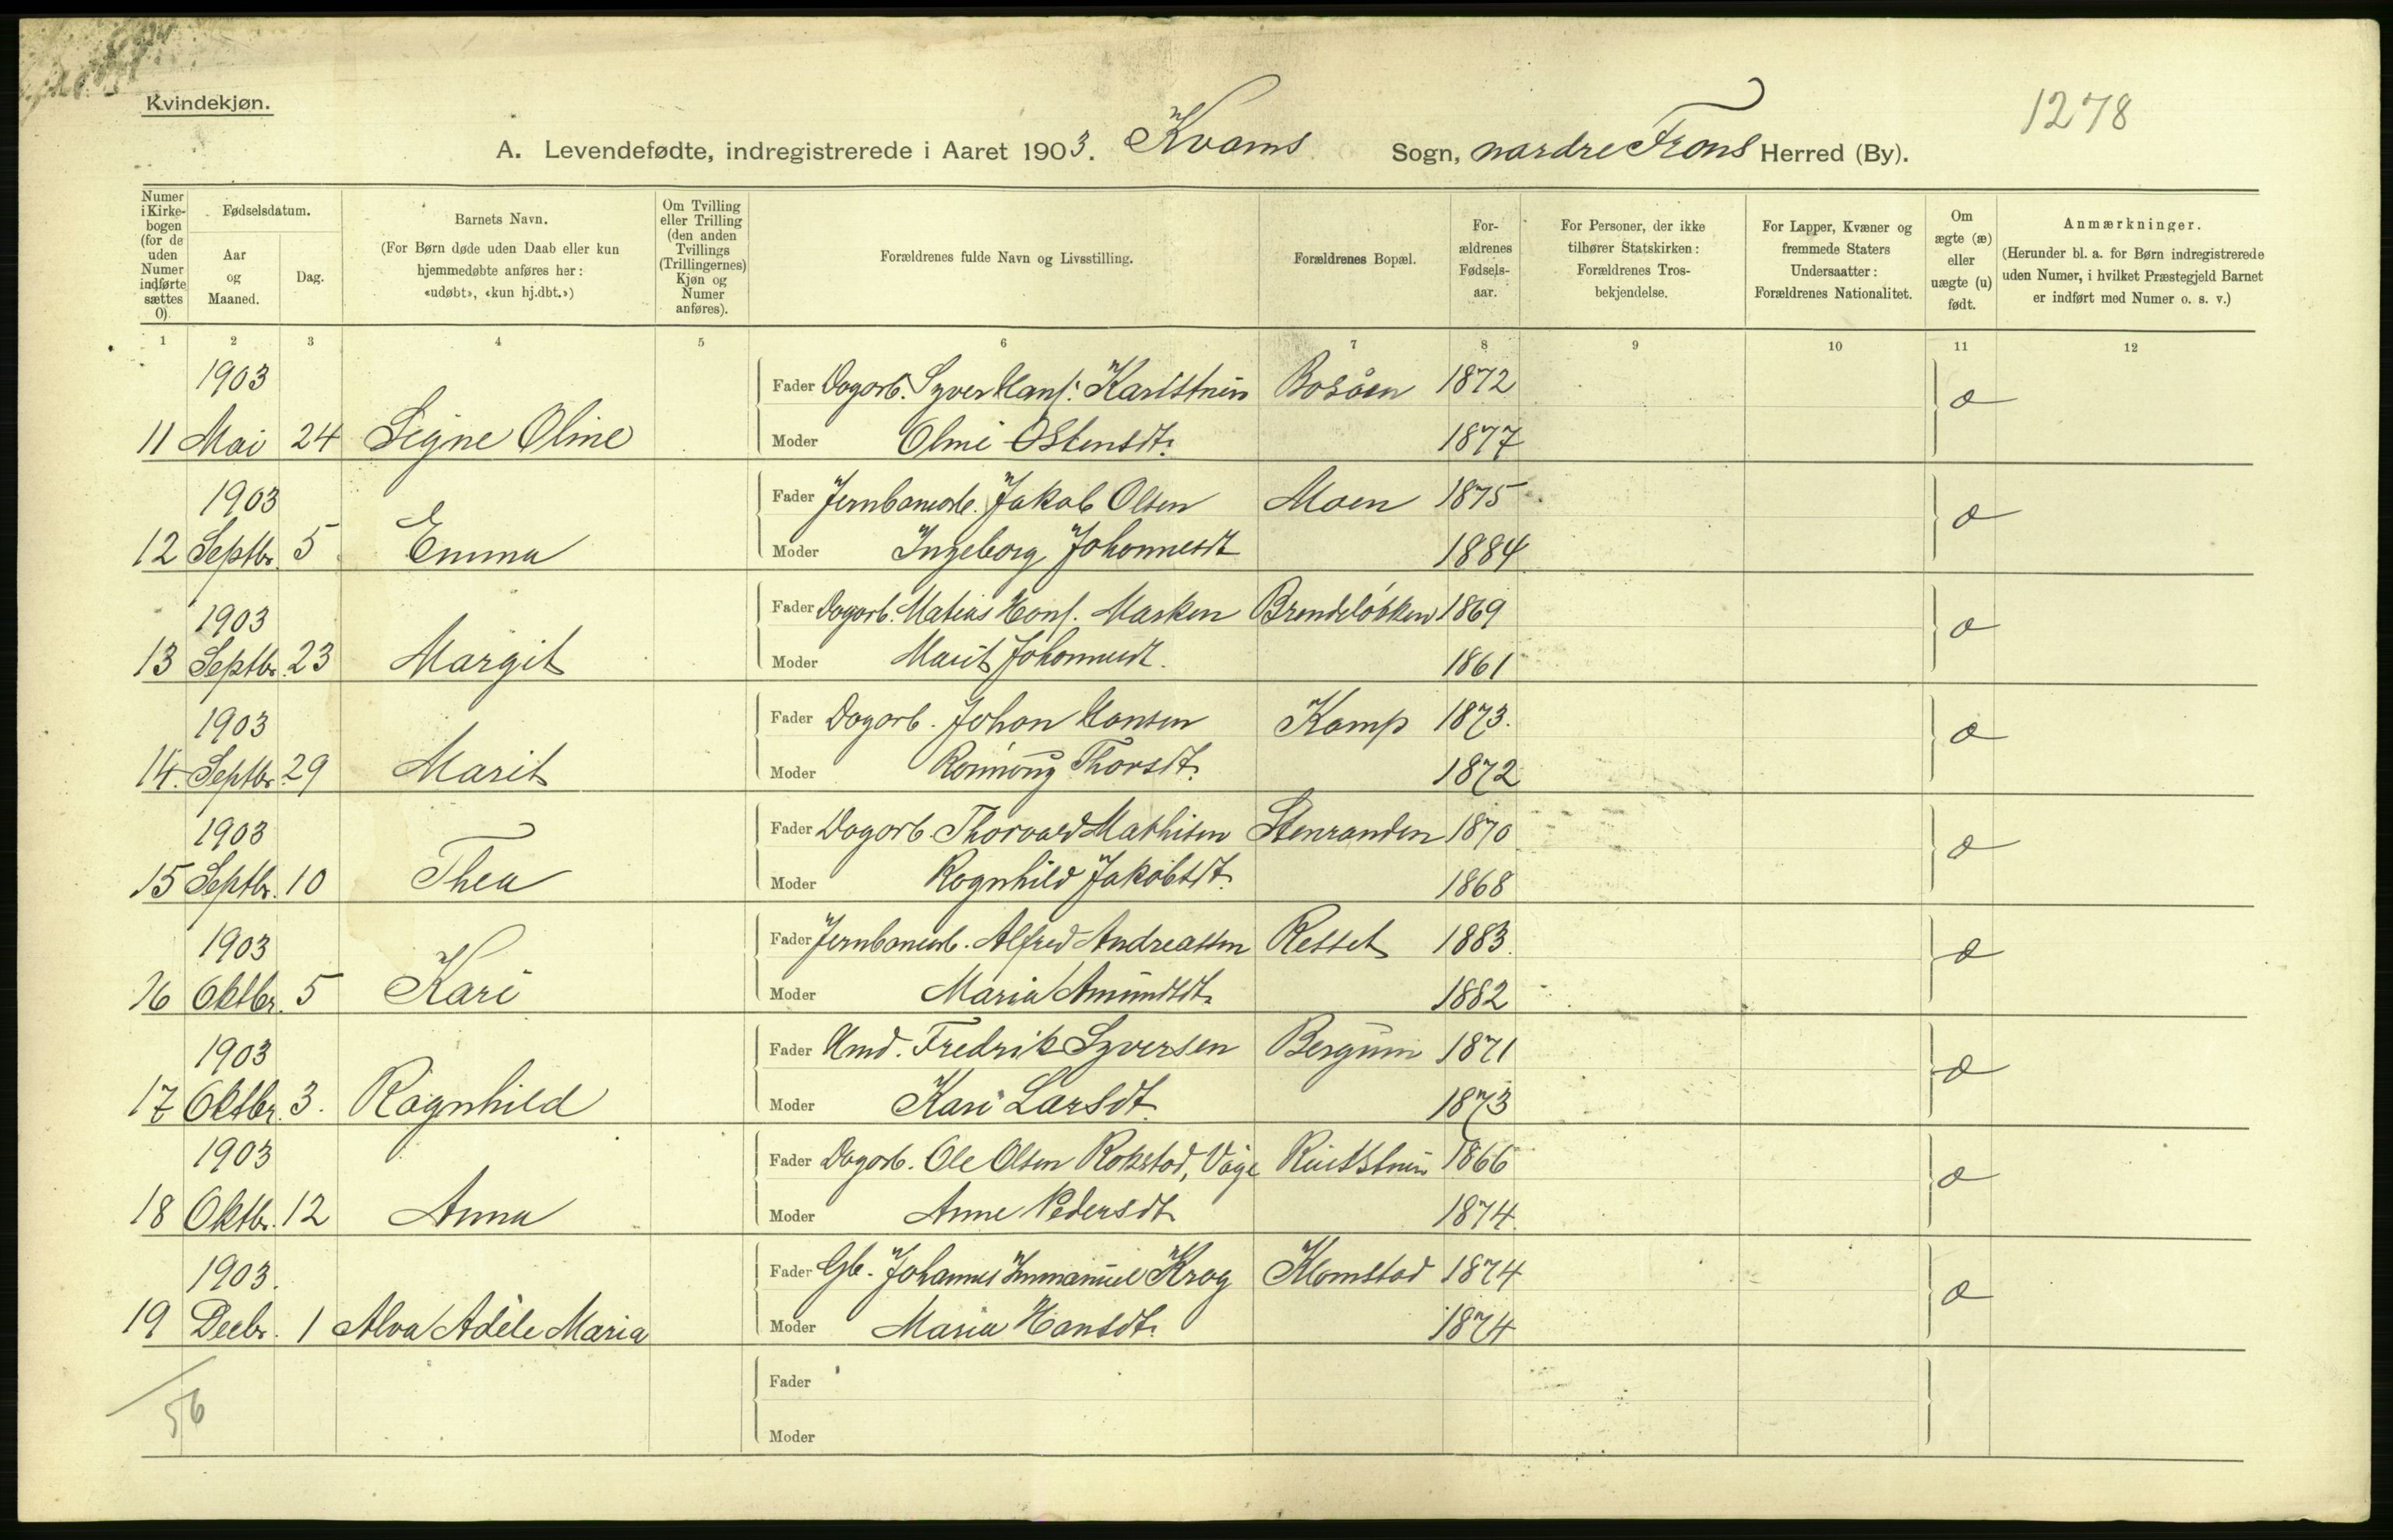 Kvindekjøn.
1278
A. Levendefødte, indregistrerede i Aaret 1903. Kvams Sogn, nordre Frons Herred (By).
Numer i Kirkebogen (for de uden Numer indførte sættes 0).
Fødselsdatum.
Aar og Maaned.
Dag.
Barnets Navn.
(For Børn døde uden Daab eller kun hjemmedøbte anføres her: «udøbt», «kun hj.dbt.»)
Om Tvilling eller Trilling (den anden Tvillings (Trillingernes) Kjøn og Numer anføres).
Forældrenes fulde Navn og Livsstilling.
Forældrenes Bopæl.
Forældrenes Fødselsaar.
For Personer, der ikke tilhører Statskirken: Forældrenes Trosbekjendelse.
For Lapper, Kvæner og fremmede Staters Undersaatter: Forældrenes Nationalitet.
Om ægte (æ) eller uægte (u) født.
Anmærkninger.
(Herunder bl. a. for Børn indregistrerede uden Numer, i hvilket Præstegjeld Barnet er indført med Numer o. s. v.)
1 2 3 4 5 6 7 8 9 10 11 12
1903 Fader Dagarb. Syver Hans. Karlstuen Bosåen 1872 æ
11 Mai 24 Signe Oline Moder Oline Ostensdt. 1877
1903 Fader Jernbanearb. Jakob Olsen Moen 1875 æ
12 Septbr. 5 Emma Moder Ingeborg Johannesdt 1884
1903 Fader Dagarb. Matias Hans. Marken Brendeløkken 1869 æ
13 Septbr. 23 Margit Moder Marit Johannesdt. 1861
1903 Fader Dagarb. Johan Hansen Kamp 1873. æ
14. Septbr. 29 Marit Moder Rønnoug Thorsdt. 1872
1903 Fader Dagarb. Thorvald Mathisen Stenranden 1870 æ
15 Septbr. 10 Thea Moder Ragnhild Jakobsdt. 1868
1903 Fader Jernbanearb. Alfred Andreassen Resset 1883. æ
16 Oktbr. 5 Kari Moder Maria Amundsdt. 1882
1903 Fader Hmd. Fredrik Syversen Bergum 1871 æ
17 Oktbr. 3. Ragnhild Moder Kari Larsdt. 1873
1903 Fader Dagarb. Ole Olsen Rokstad, Våge Ruststuen 1866 æ
18 Oktbr. 12 Anna Moder Anne Pedersdt 1874.
1903. Fader Gb. Johannes Immanuel Krog Klomstad 1874 æ
19 Decbr. 1 Alva Adéle Maria Moder Maria Hansdt. 1874
Fader
56
Moder